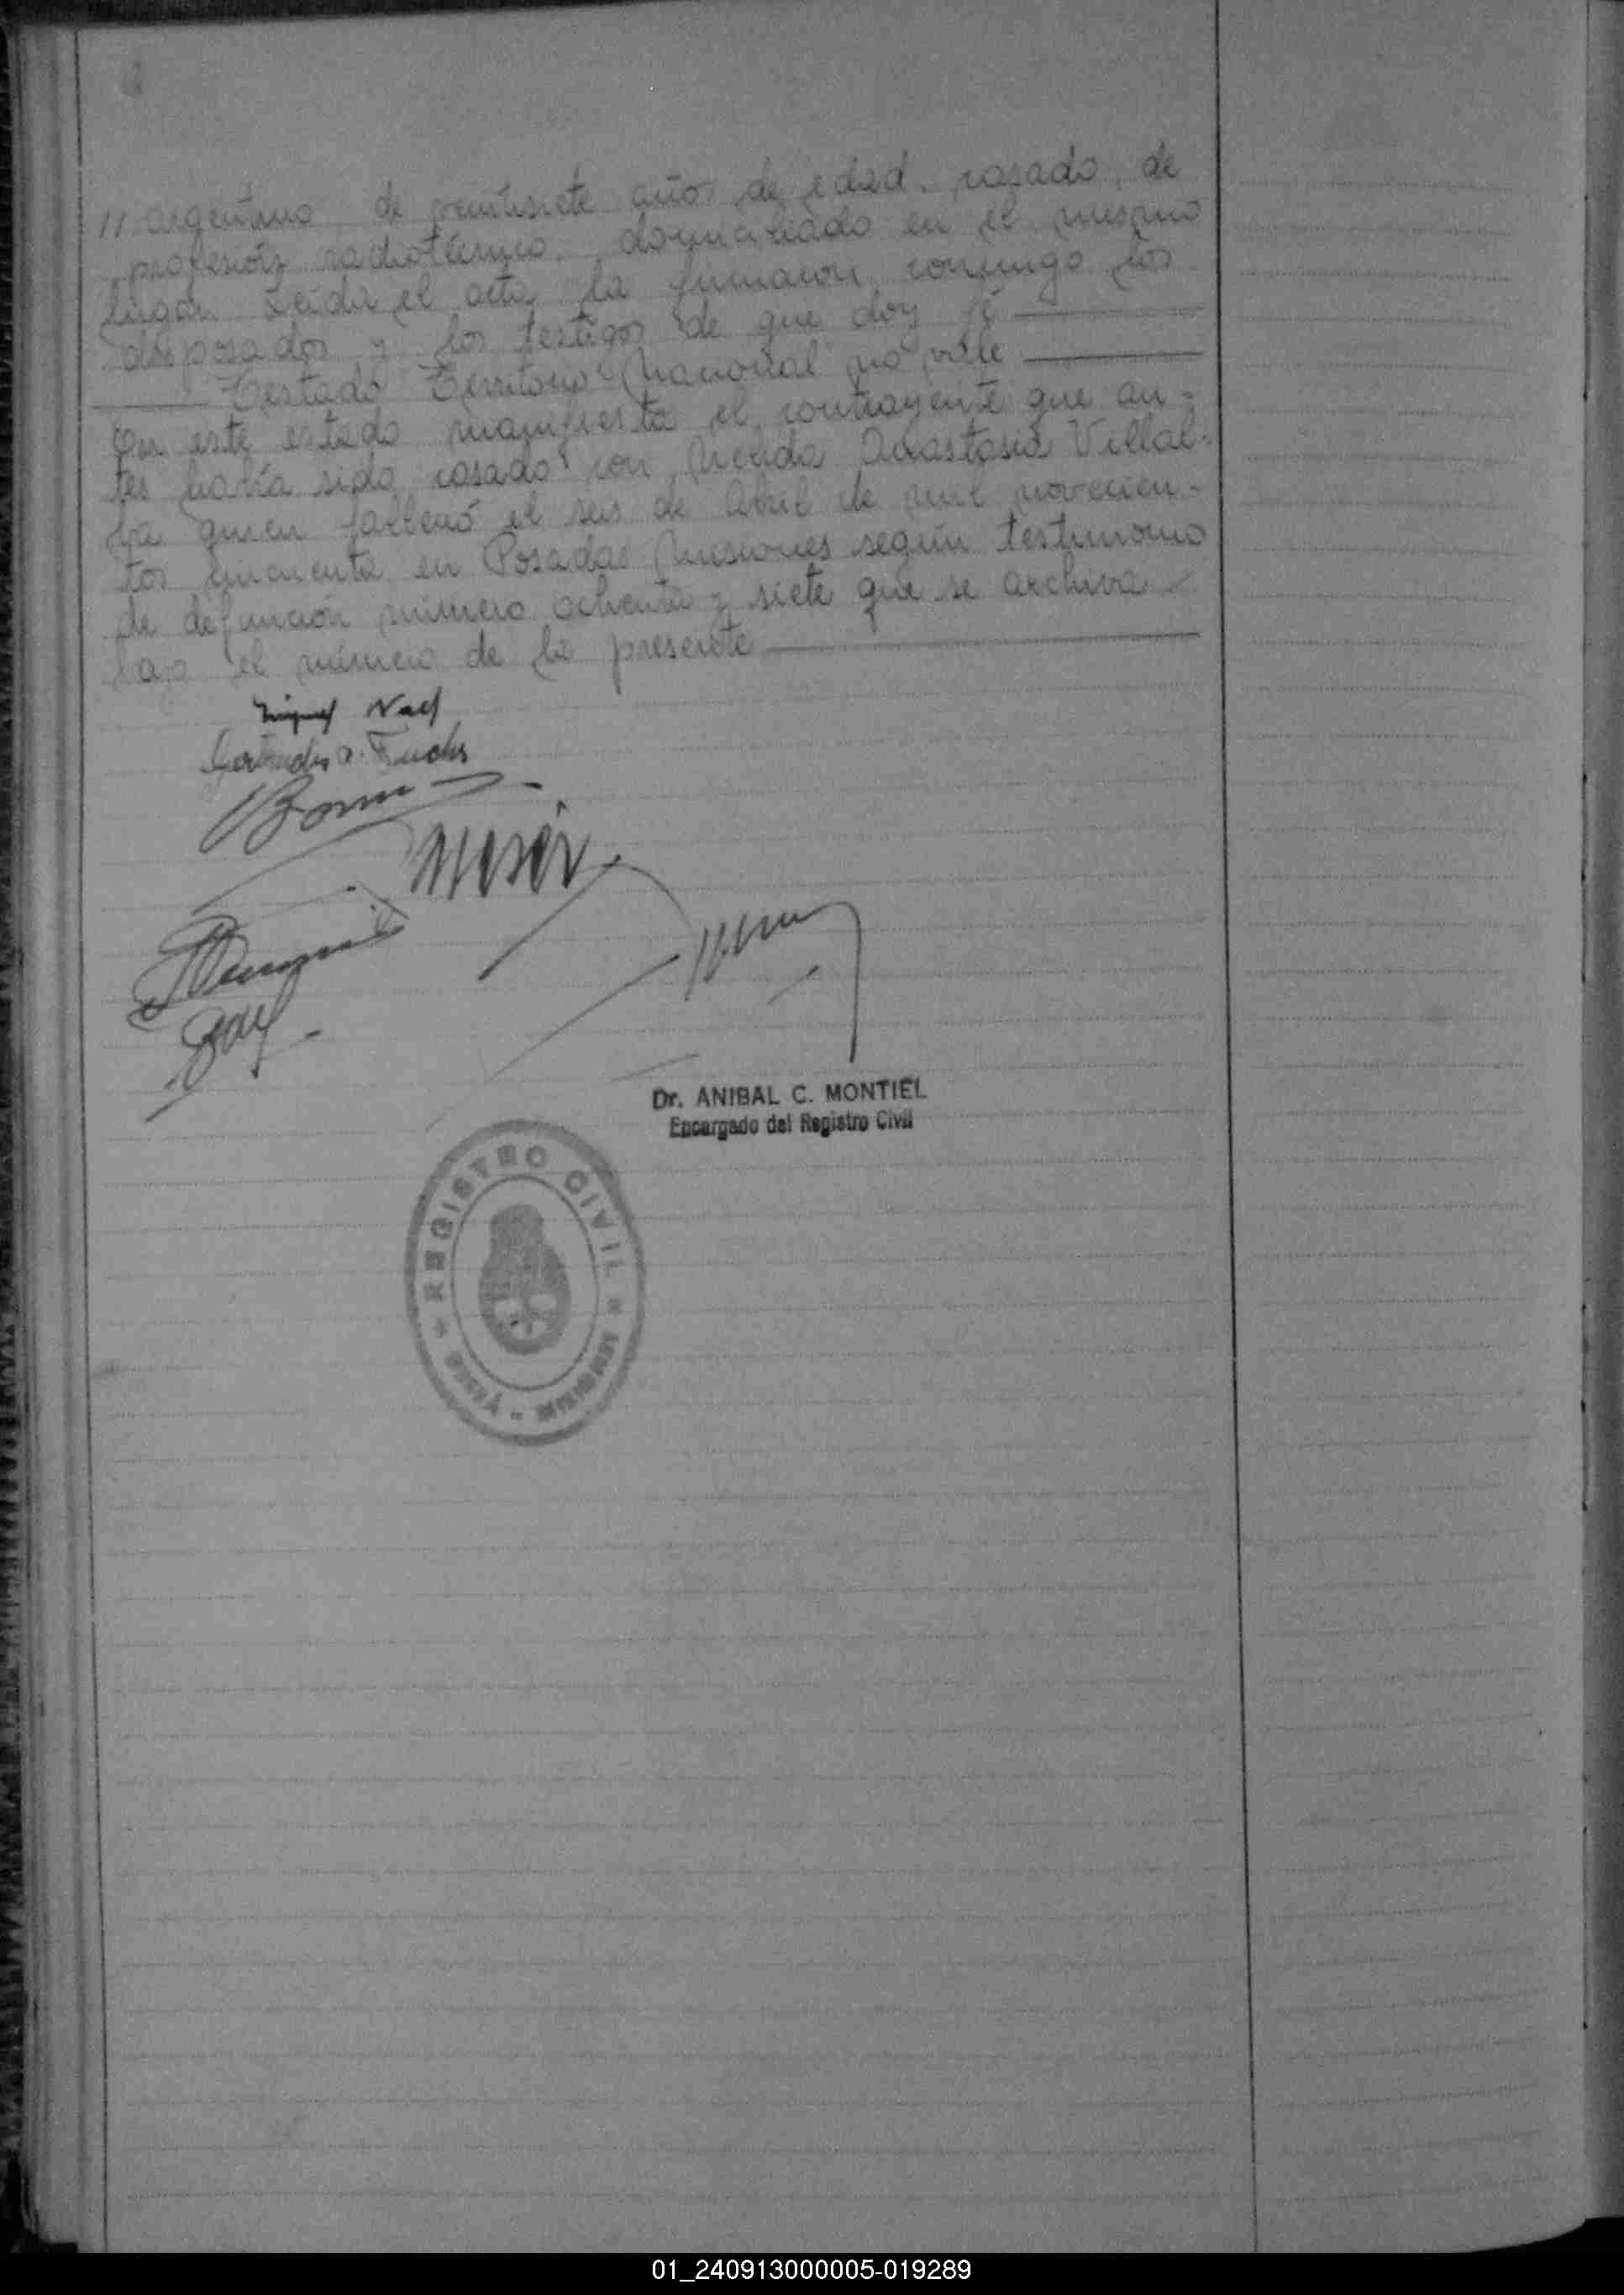 // argentino, de veintisiete años de edad, casado, de
profesión radiotécnico, domiciliado en el mismo
lugar. Leida el acta la firmaron conmigo los
desposados y los testigos de que doy fé
Testado Territorio Nacional no vale
En este estado manifiesta el contrayente que an-
tes había sido casado con Nelida Anastasia Villal-
ba quien falleció el seis de Abril de mil novecien-
tos cincuenta en Posadas Misiones según testimonio
de defunción número ochenta y siete que se archiva
bajo el número de la presente
Miguel
Gertrudis Fuchs
Dr. ANIBAL C. MONTIEL
Encargado del Registro Civil
REGISTRO CIVIL
MISIONES
01_240913000005-019289